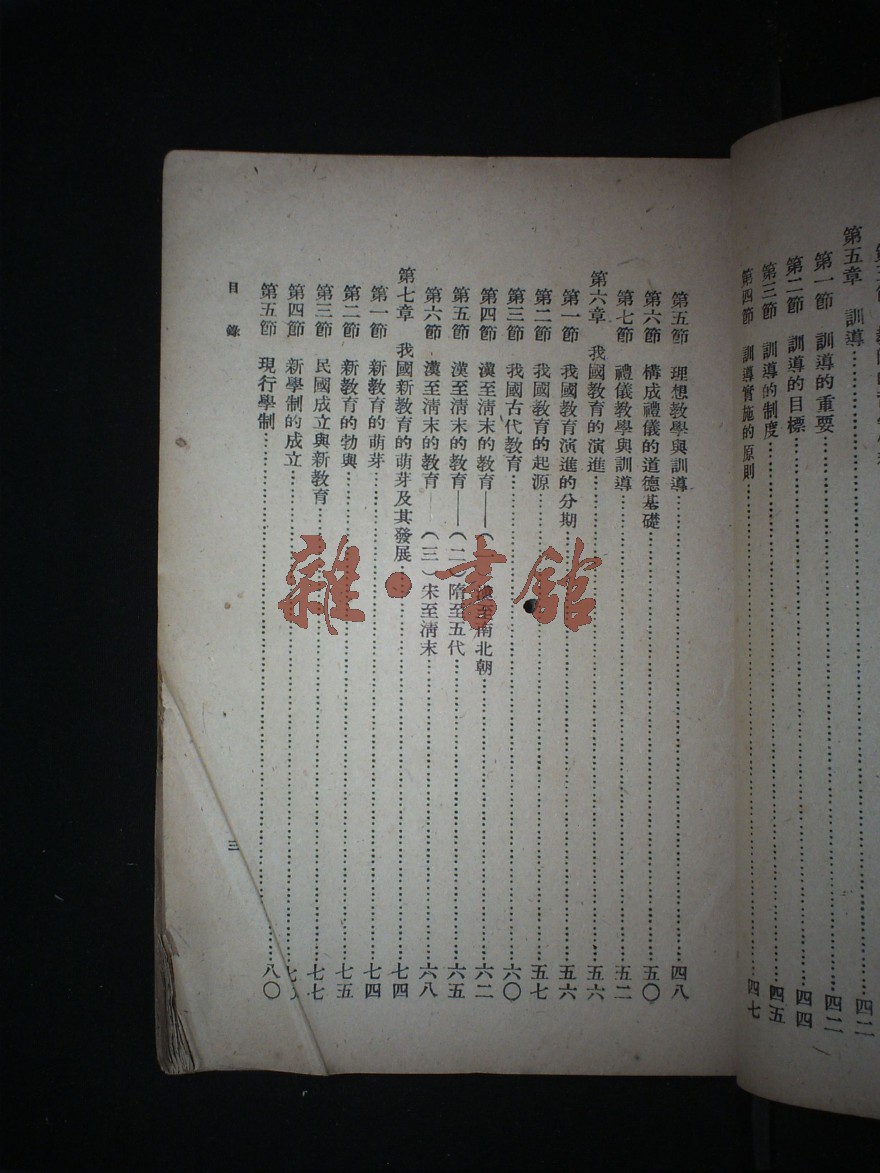 第五章 訓導……四二
第一節 訓導的重要……四二
第二節 訓導的目標……四四
第三節 訓導的制度……四五
第四節 訓導實施的原則……四七
第五節 理想教學與訓導……四八
第六節 構成禮儀的道德基礎……五〇
第七節 禮儀教學與訓導……五二
第六章 我國教育的演進……五六
第一節 我國教育演進的分期……五六
第二節 我國教育的起源……五七
第三節 我國古代教育……六〇
第四節 漢至清末的教育——(漢至南北朝……六二
第五節 漢至清末的教育——(二)隋至五代……六五
第六節 漢至清末的教育——(三)宋至清末……六八
第七章 我國新教育的萌芽及其發展……七四
第一節 新教育的萌芽……七四
第二節 新教育的勃興……七五
第三節 民國成立與新教育……七七
第四節 新學制的成立……七
第五節 現行學制……八〇
目錄
三
雜·書館